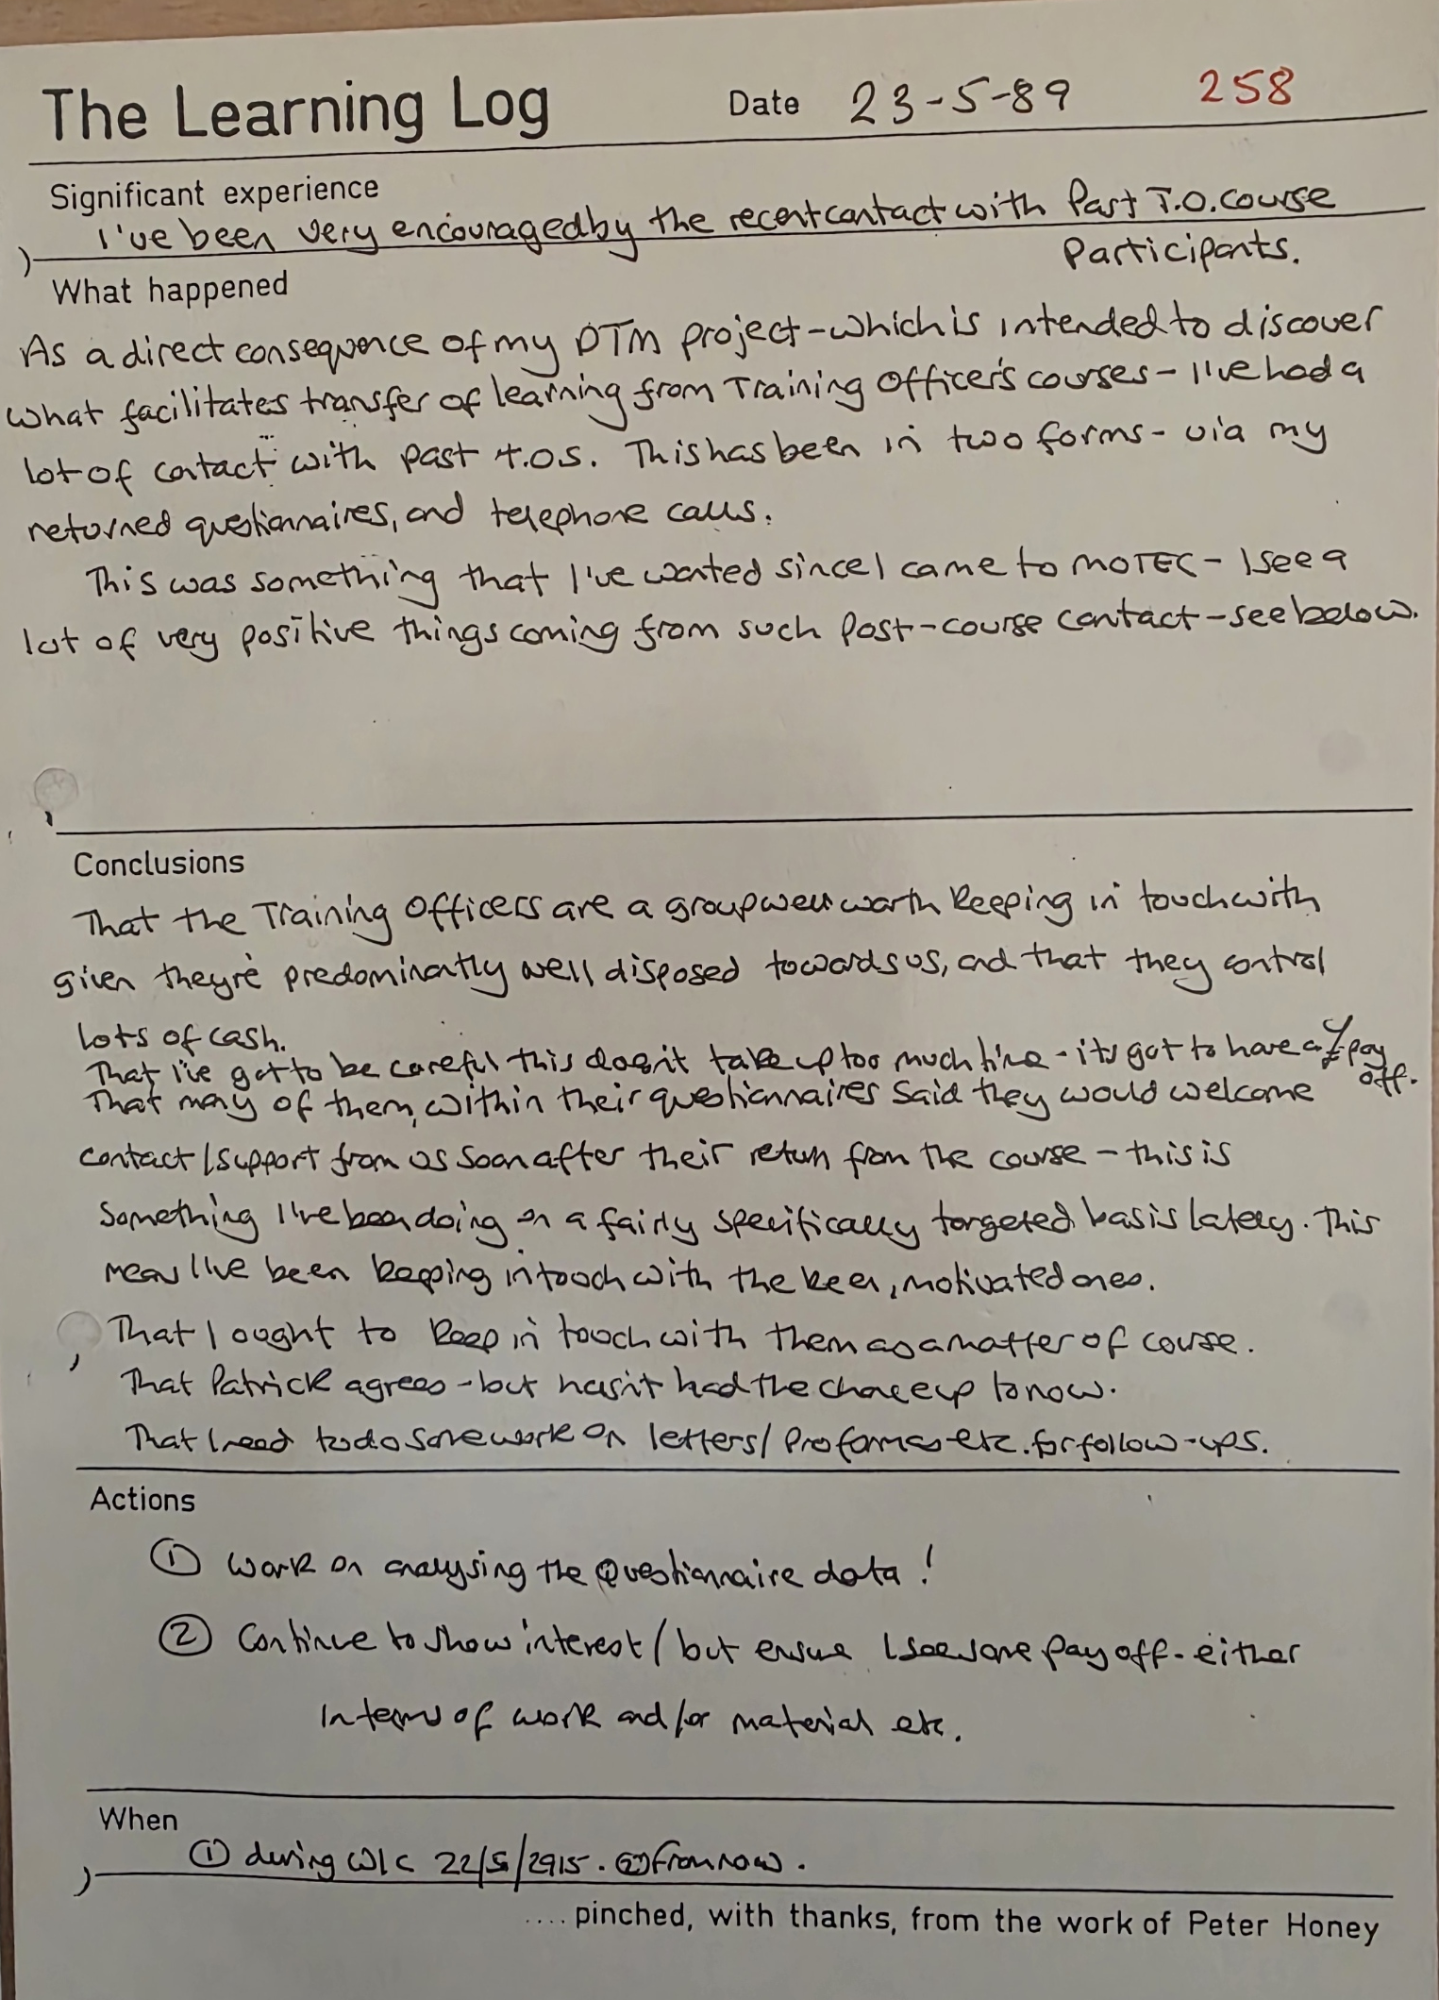 The Learning Log Date 23-5-89 258
Significant experience
I've been very encouraged by the recent contact with Past T.O. course
Participants.
What happened
As a direct consequence of my DTM project - which is intended to discover
what facilitates transfer of learning from Training Officer's courses - I've had a
lot of contact with past T.O.s. This has been in two forms - via my
returned questionnaires, and telephone calls.
This was something that I've wanted since I came to MOTEC - I see a
lot of very positive things coming from such Post-course contact - see below.
Conclusions
That the Training Officers are a group well worth keeping in touch with
given they're predominantly well disposed towards us, and that they control
lots of cash.
That I've got to be careful this doesn't take up too much time - it's got to have a £ pay
off.
That many of them, within their questionnaires said they would welcome
contact/support from us soon after their return from the course - this is
something I've been doing on a fairly specifically targeted basis lately. This
means I've been keeping in touch with the keen, motivated ones.
That I ought to keep in touch with them as a matter of course.
That Patrick agrees - but hasn't had the chance up to now.
That I need to do some work on letters/proformas etc. for follow-ups.
Actions
① Work on analysing the Questionnaire data!
② Continue to show interest/but ensure I see some pay off - either
in terms of work and/or material etc.
When
① during W/C 22/5/29/5. ② From now.
.... pinched, with thanks, from the work of Peter Honey